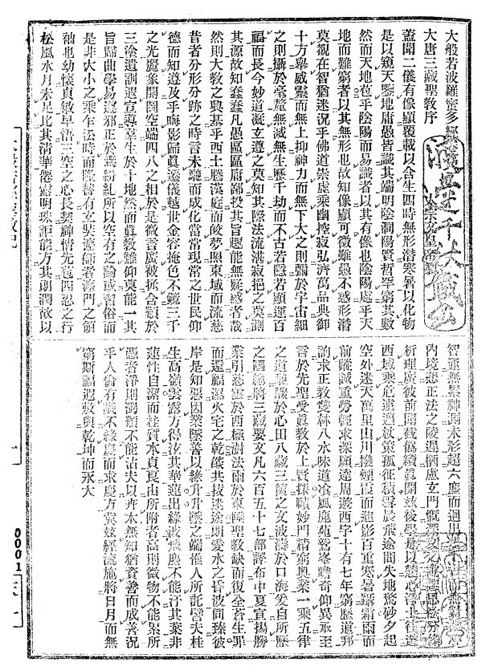 大般若波羅蜜多經
大唐三藏聖教序
蓋聞二儀有像顯覆載以含生四時無形潛寒暑以化物
是以窺天鑑地庸愚皆識其端明陰洞陽賢哲罕窮其數
然而天地苞乎陰陽而易識者以其有像也陰陽處乎天
地而難窮者以其無形也故知像顯可徵雖愚不惑形潛
莫覩在智猶迷況乎佛道崇虛乘幽控寂弘濟萬品典御
十方舉威靈而無上抑神力而無下大之則彌於宇宙細
之則攝於毫釐無滅無生歷千劫而不古若隱若顯運百
福而長今妙道凝玄遵之莫知其際法流湛寂挹之莫測
其源故知蠢蠢凡愚區區庸鄙投其旨趣能無疑惑者哉
然則大教之興基乎西土騰漢庭而皎夢照東域而流慈
昔者分形分跡之時言未馳而成化當常現常之世民仰
德而知遵及乎晦影歸真遷儀越世金容掩色不鏡三千
之光麗象開圖空端四八之相於是微言廣被拯含類於
三途遺訓遐宣導羣生於十地然而真教難仰莫能一其
旨歸曲學易遵邪正於焉紛糺所以空有之論或習俗而
是非大小之乘乍沿時而隆替有玄奘法師者法門之領
袖也幼懷貞敏早悟三空之心長契神情先苞四忍之行
松風水月未足比其清華仙露明珠詎能方其朗潤故以
智通無累神測未形超六塵而迥出
內境悲正法之陵遲栖慮玄門慨深文之訛謬思欲分條
析理廣彼前聞截偽續真開茲後學是以翹心淨土往遊
西域乘危遠邁杖策孤征積雪晨飛途間失地驚沙夕起
空外迷天萬里山川撥煙霞而進影百重寒暑躡霜雨而
前蹤誠重勞輕求深願達周遊西宇十有七年窮歷道邦
詢求正教雙林八水味道餐風鹿苑鷲峯瞻奇仰異承至
言於先聖受真教於上賢探賾妙門精窮奧業一乘五律
之道馳驟於心田八藏三篋之文波濤於口海爰自所歷
之國總將三藏要文凡六百五十七部譯布中夏宣揚勝
業引慈雲於西極注法雨於東陲聖教缺而復全蒼生罪
而還福濕火宅之乾燄共拔迷途朗愛水之昏波同臻彼
岸是知惡因業墜善以緣升升墜之端惟人所託譬夫桂
生高嶺雲露方得泫其華蓮出綠波飛塵不能汙其葉非
蓮性自潔而桂質本貞良由所附者高則微物不能累所
憑者淨則濁類不能沾夫以卉木無知猶資善而成善況
乎人倫有識不緣慶而求慶方冀茲經流施將日月而無
窮斯福遐敷與乾坤而永大
0001